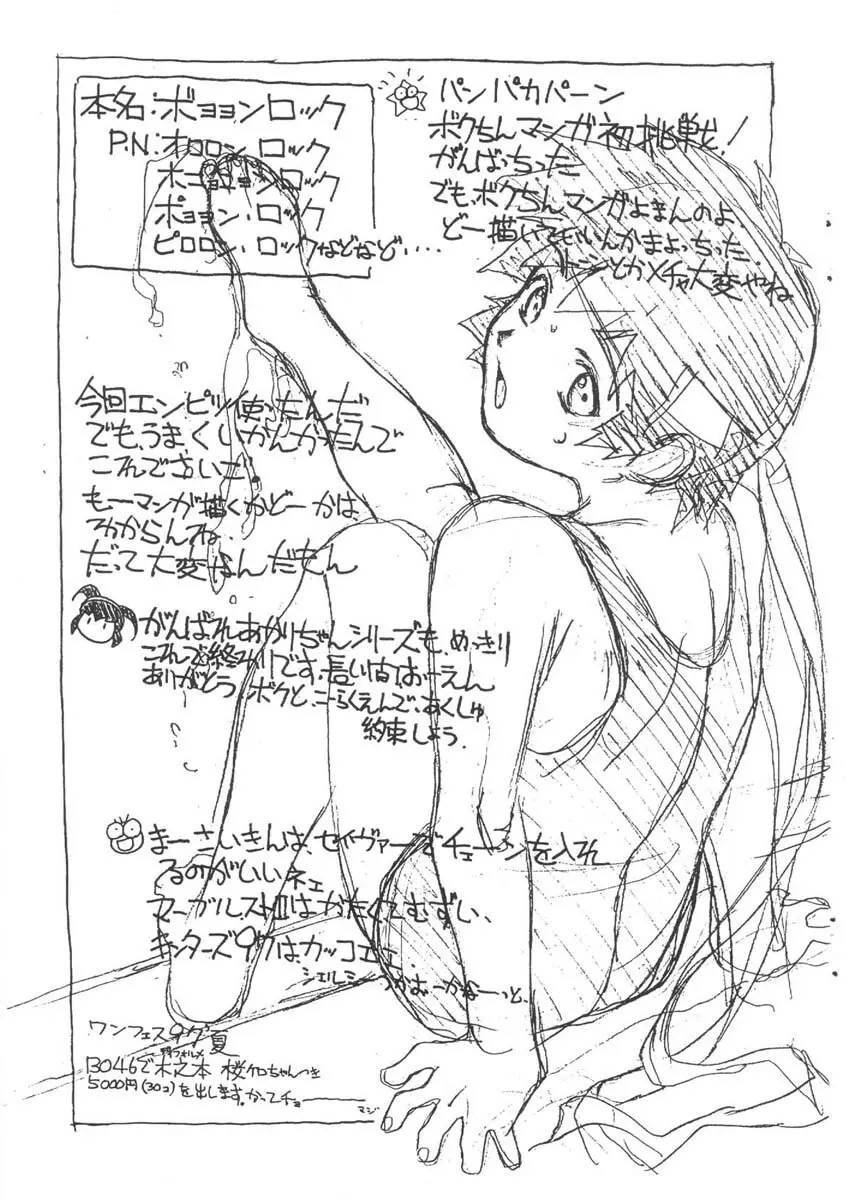 本名:ボヨヨンロック
P.N:オロロン ロック
ホニョニョン ロック
ポョョン・ロック
ピロロン・ロックなどなど・・・・
パンパカパーン
ボクちんマンガ初挑戦!
がんばっちった
でも、ボクちんマンガよまんのよ
どー描いていいんかまよっちった.
とかメチャ大変やね
今回エンピツ使ったんだ
でも、うまくいかんかったんで
これでさいご.
もーマンガ描くかどーかは、
わからんね..
だって大変なんだもん
がんばれあかりちゃんシリーズも、めっきり
これで終わりです.長い間おーえん
ありがとう.ボクと、こーらくえんで、あくしゅ
約束しよう.
まーさいきんは、セイヴァーでチェーンを入れ
るのがいいネェ
マーブルストIIはかたくてむずい、
キングターズ97は、カッコエー
シェルミーつかおーかなーっと、
ワンフェス97夏
B046で木之本 桜ケロちゃんつき
5000円(30コ)を出します.かってチョ――
マジ